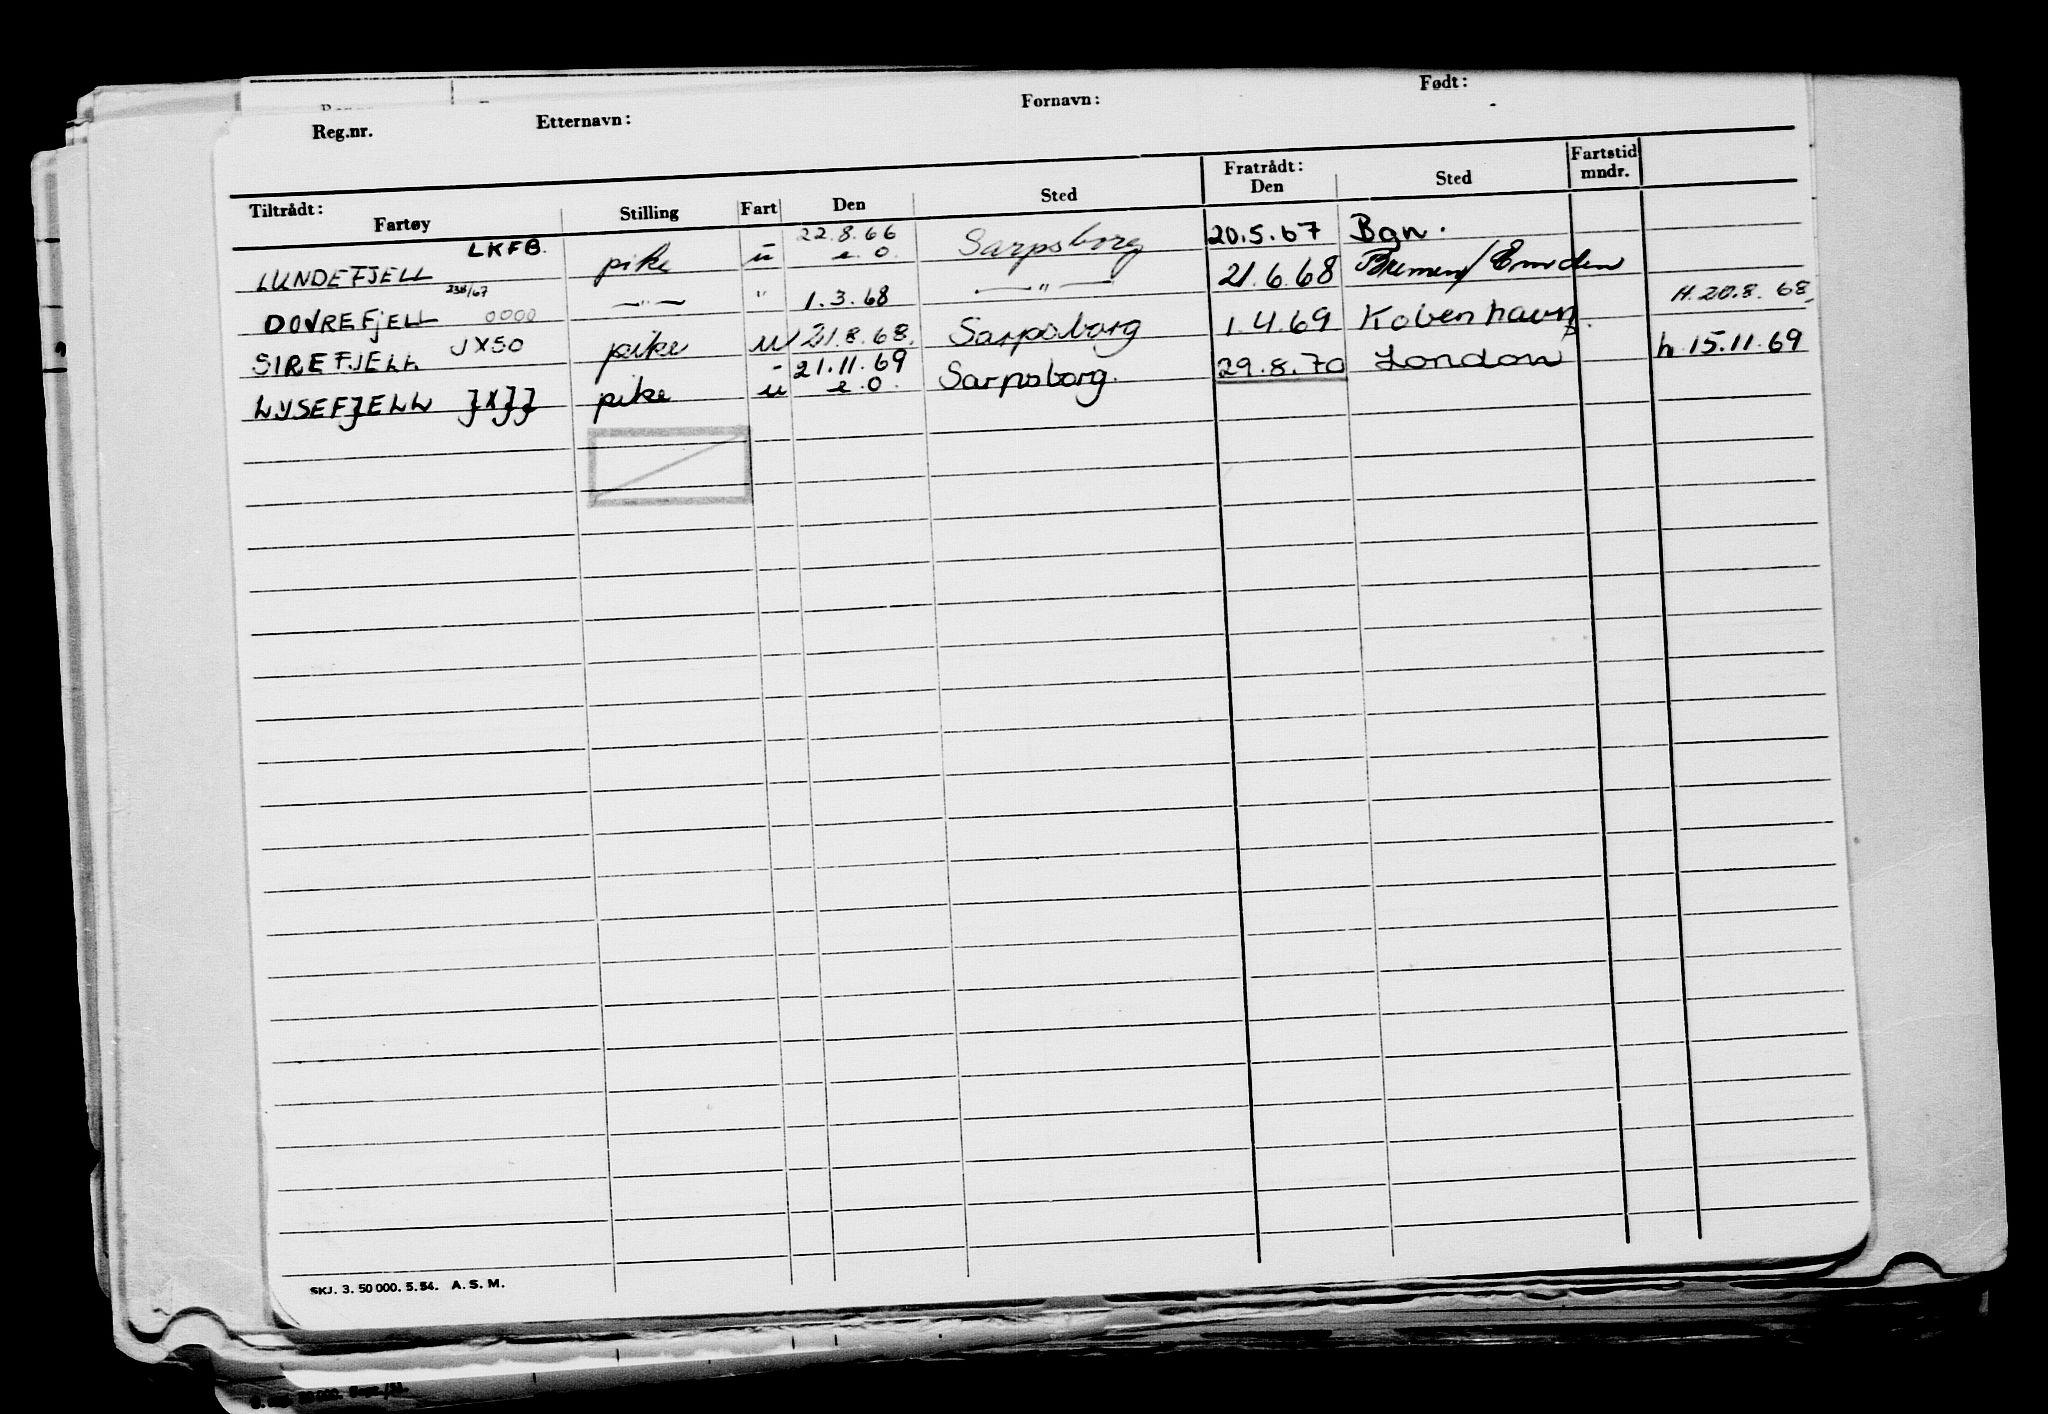 Reg.nr. Etternavn: Fornavn: Født:
Tiltrådt: Fratrådt: Fartstid
Fartøy Stilling Fart Den Sted Den Sted mndr.
LUNDEFJELL LKFB. pike u 22.8.66 e.o. Sarpsborg 20.5.67 Bgn.
DOVREFJELL 238/67 0000 —"— " 1.3.68 —"— 21.6.68 Bremen/Emden
SIREFJELL JXSO pike u 21.8.68. Sarpsborg 1.4.69 Kobenhavn H.20.8.68,
LYSEFJELL JXJJ pike u 21.11.69 e.o. Sarpsborg. 29.8.70 London h 15.11.69
SKJ. 3. 50 000. 5.54. A. S. M.